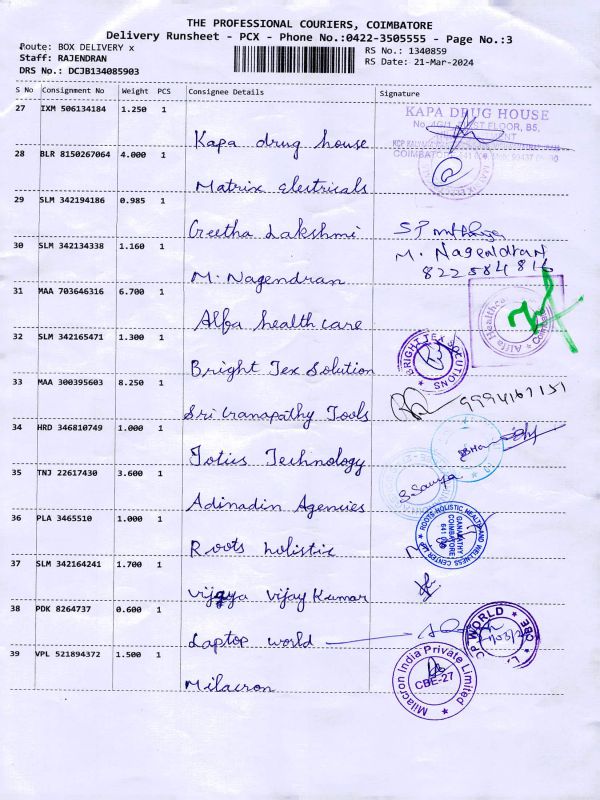 THE PROFESSIONAL COURIERS, COIMBATORE
Delivery Runsheet - PCX - Phone No.:0422-3505555 - Page No.:3
Route: BOX DELIVERY x
RS No.: 1340859
Staff: RAJENDRAN
RS Date: 21-Mar-2024
DRS No.: DCJB134085903
S No Consignment No Weight PCS Consignee Details Signature
27 IXM 506134184 1.250 1
KAPA DRUG HOUSE
Kapa drug house
28 BLR 8150267064 4.000 1
Matrix Electricals
29 SLM 342194186 0.985 1
Geetha Lakshmi
30 SLM 342134338 1.160 1
M. Nagendran
822584816
M. Nagendran
31 MAA 703646316 6.700 1
Alfa health care
32 SLM 342165471 1.300 1
BRIGHT TEX SOLUTIONS
Bright Tex Solution
33 MAA 300395603 8.250 1
9994167151
Sri Ganapathy Tools
34 HRD 346810749 1.000 1
Totics Technology
35 TNJ 22617430 3.600 1
S. Saumya
Adinadin Agencies
36 PLA 3465510 1.000 1
ROOTS HOLISTIC HEALTH AND WELLNESS CENTER LLP
GANAPATHY
COIMBATORE
Roots holistic
37 SLM 342164241 1.700 1
Vijaya Vijay Kumar
38 PDK 8264737 0.600 1
Laptop world
39 VPL 521894372 1.500 1
Milacron India Private Limited
CBE-27
Milacron